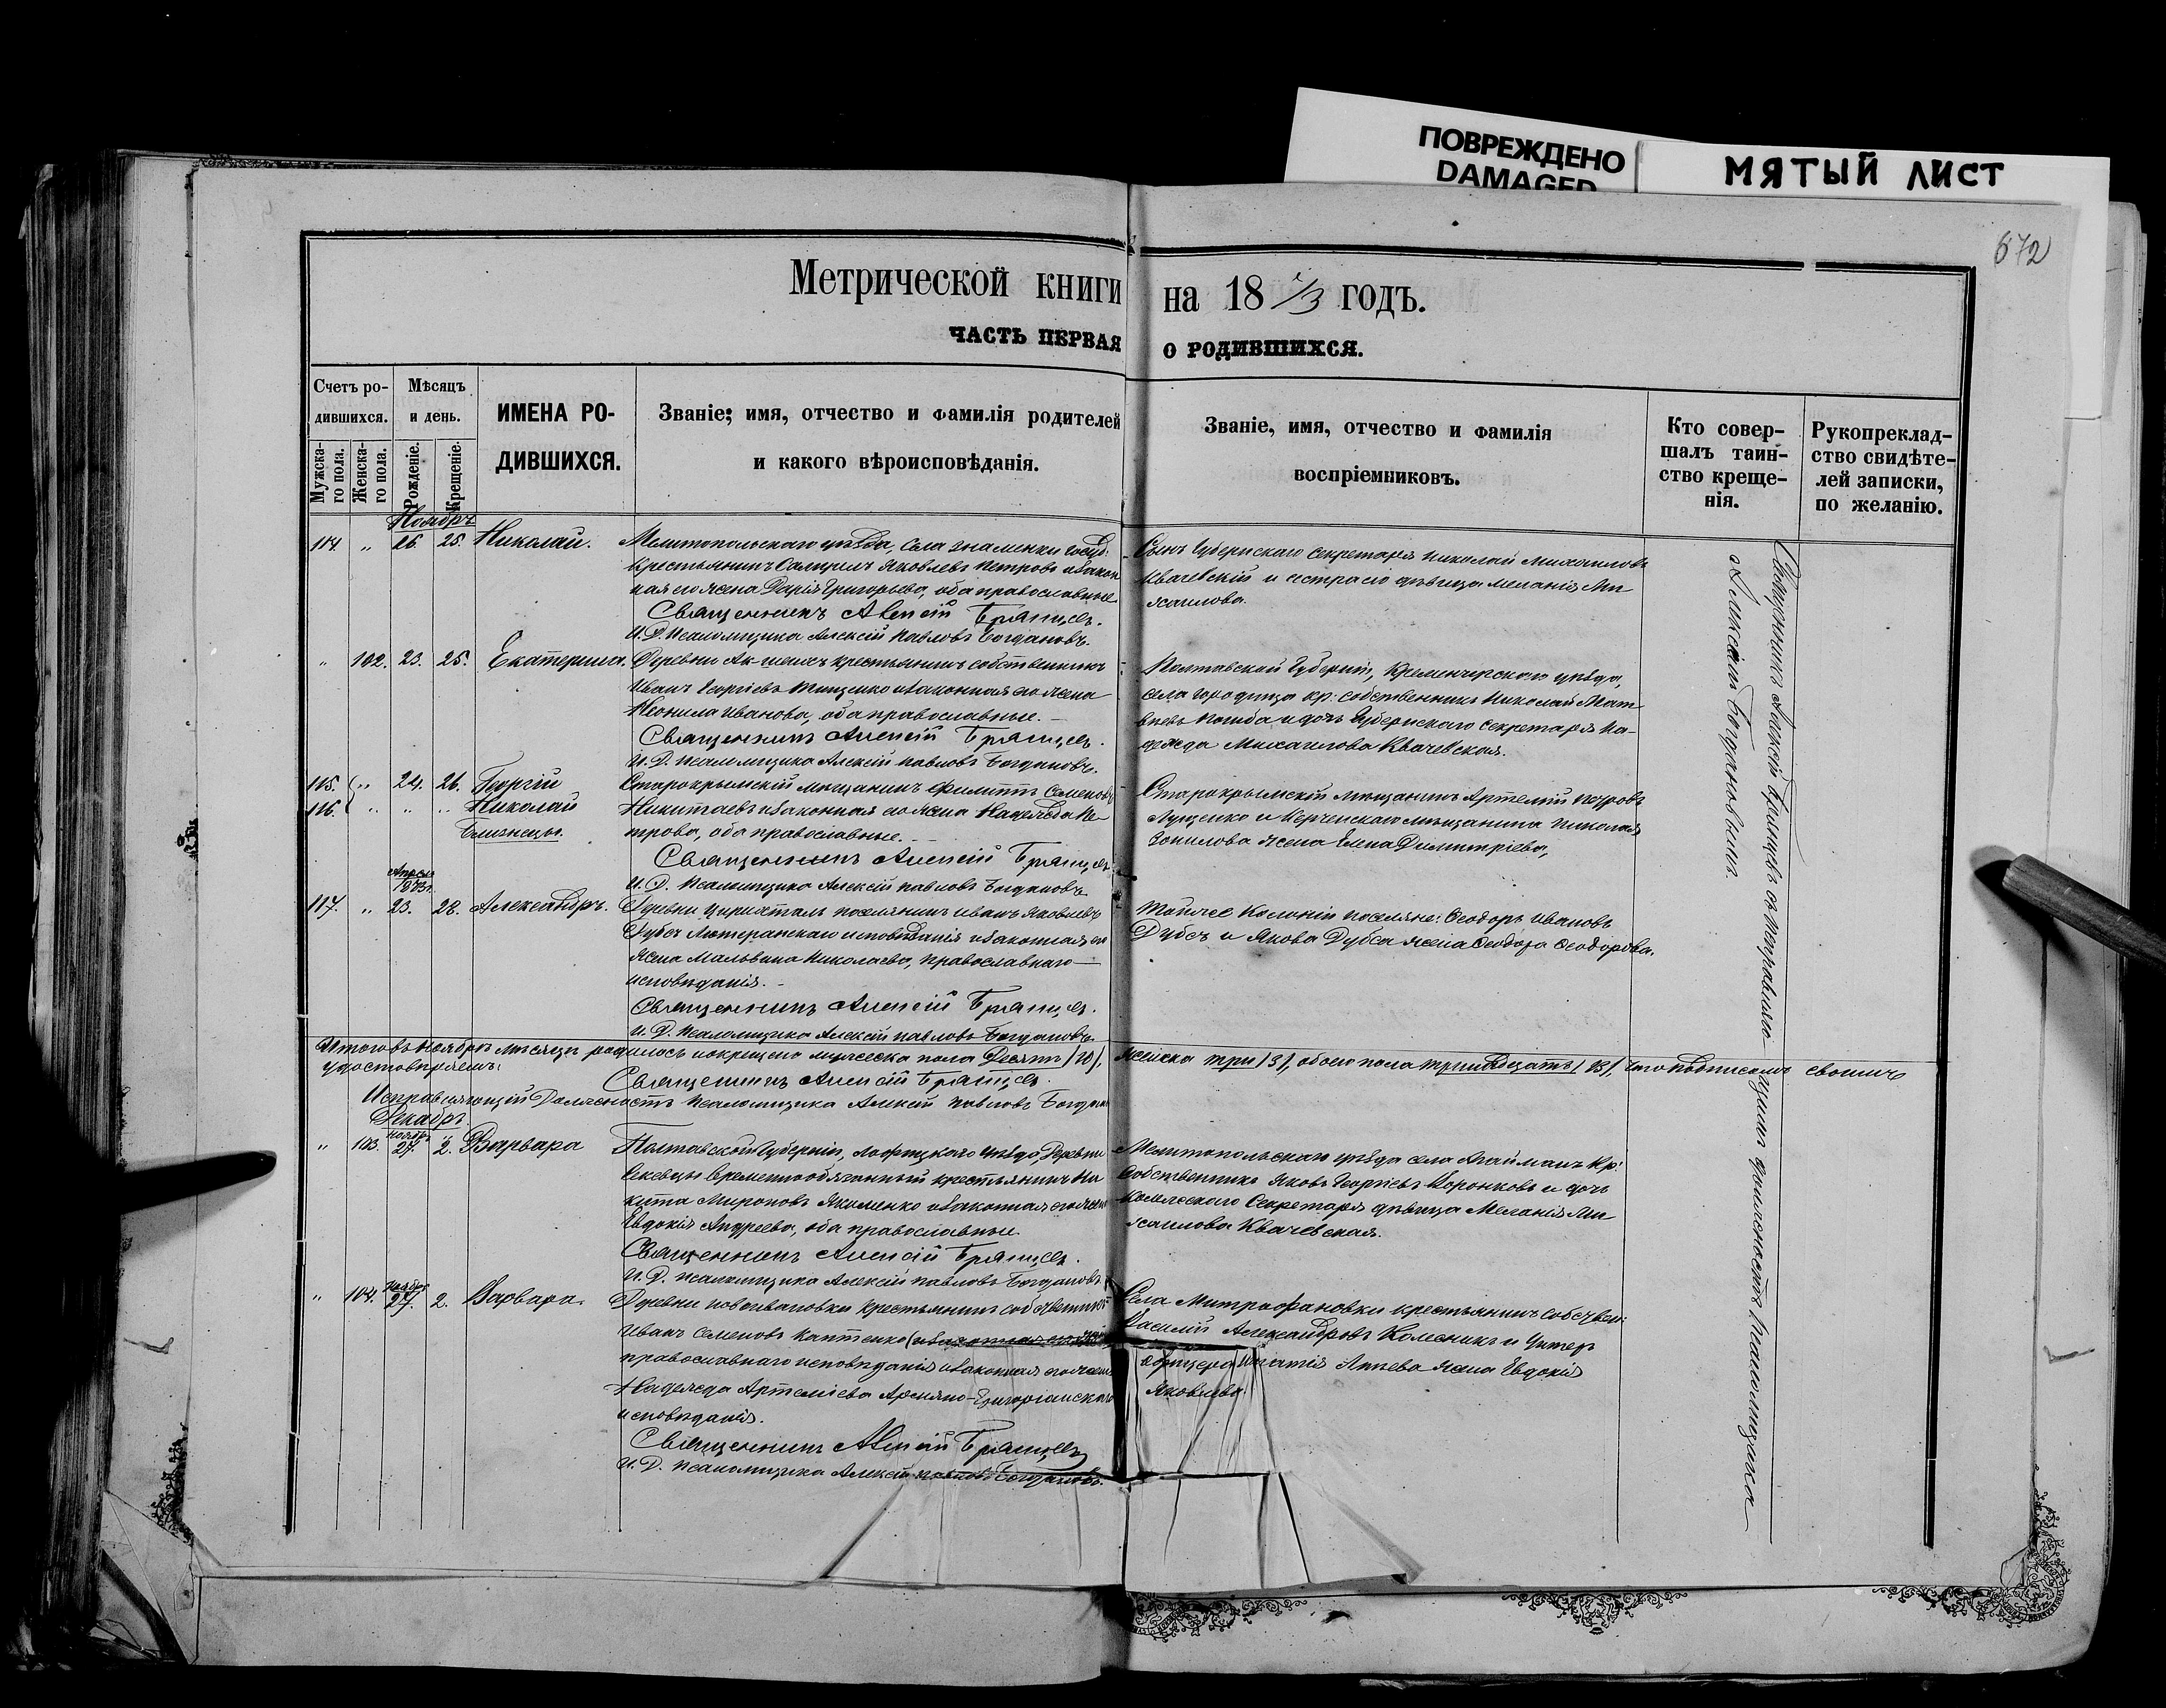 ПОВРЕЖДЕНО
DAMAGED
МЯТЫЙ ЛИСТ
672
Метрической книги на 1873 годъ.
ЧАСТЬ ПЕРВАЯ О РОДИВШИХСЯ.
Счетъ ро-
дившихся.
Мужска-
го пола.
Женска-
го пола.
Мѣсяцъ
и день.
Рожденіе.
Крещеніе.
ИМЕНА РО-
ДИВШИХСЯ.
Званіе; имя, отчество и фамилія родителей
и какого вѣроисповѣданія.
Званіе, имя, отчество и фамилія
воспріемниковъ.
Кто совер-
шалъ таин-
ство креще-
нія.
Рукопреклад-
ство свидѣте-
лей записки,
по желанію.
Ноябрь
114. " 26. 25. Николай.
Мелитопольскаго уѣзда, села Знаменки Госуд:
крестьянинъ Яковлевъ Петровъ и закон
ная его жена Дарія Григорьева, оба православные
Священникъ Алексій Брянцев.
И. Д. Псаломщика Алексій Павловъ Богдановъ.
Сынъ Губернскаго секретаря Николай Михаиловъ
Квачевскій и сестра его дѣвица Меланія Ми
хаилова.
" 102. 23. 25. Екатерина.
Деревни Ак-шеихъ крестьянинъ собственникъ
Иванъ Георгіевъ Тищенко и законная его жена
Неонила Иванова, оба православные.
Священникъ Алексій Брянцев.
И. Д. Псаломщика Алексій Павловъ Богдановъ.
Полтавской Губерніи, Кременчугскаго уѣзда,
села Городища кр: собственникъ Николай Мат
вѣевъ и дочь Губернскаго секретаря На-
дежда Михаилова Квачевская.
115. " 24. 26. Георгій
116. " " " Николай
близнецы.
Старокрымскій мѣщанинъ Филиппъ Семеновъ
Никитаевъ и законная его жена Надежда Пе-
трова, оба православные.
Священникъ Алексій Брянцев.
И. Д. Псаломщика Алексій Павловъ Богдановъ.
Старокрымскій мѣщанинъ Артемій Петровъ
Луценко и Керченскаго мѣщанина Николая
жена Елена Димитріева,
Апрель
1873 г.
117. " 23. 28. Александръ.
Деревни Цюрихталь поселянинъ Иванъ Яковлевъ
Дубсъ Лютеранскаго исповѣданія и законная его
жена Мальвина Николаева, православнаго
исповѣданія.
Священникъ Алексій Брянцев.
И. Д. Псаломщика Алексій Павловъ Богдановъ.
колоніи поселяне: Ѳеодоръ Ивановъ
Дубсъ и Якова Дубса жена Ѳеодора Ѳеодорова.
Итого въ Ноябрѣ мѣсяцѣ родилось и окрещено мужеска пола Десять (10), женска три (3), обоего пола тринадцать (13), что подписомъ своимъ
удостовѣряемъ:
Священникъ Алексій Брянцев.
Исправляющій Должность Псаломщика Алексій Павловъ Богдановъ
Декабрь
Ноябрь
" 103. 27. 2. Варвара
Полтавской Губерніи, Лохвицкаго уѣзда, Деревни
временнообязанный крестьянинъ Ни
кита Мироновъ Якименко и законная его жена
Евдокія Андреева, оба православные.
Священникъ Алексій Брянцев.
И. Д. Псаломщика Алексій Павловъ Богдановъ.
Мелитопольскаго уѣзда села Агайманъ Кр:
Собственникъ Яковъ Георгіевъ Воронковъ и дочь
Секретаря дѣвица Меланія Ми
хаилова Квачевская.
Ноябрь
" 104. 27. 2. Варвара.
Деревни Новоивановки крестьянинъ собственникъ
Иванъ Семеновъ Каптенко
православнаго исповѣданія и законная его жена
Надежда Артеміева Армяно-Григоріанскаго
исповѣданія.
Священникъ Алексій Брянцев
И. Д. Псаломщика Алексій Павловъ Богдановъ.
Села Митрофановки крестьянинъ собствен:
Василій Александровъ Колесникъ и Унтеръ
офицера жена Евдокія
Яковлева.
Священникъ Алексій Брянцевъ съ исправляющимъ должность псаломщика
Алексіемъ Богдановымъ.